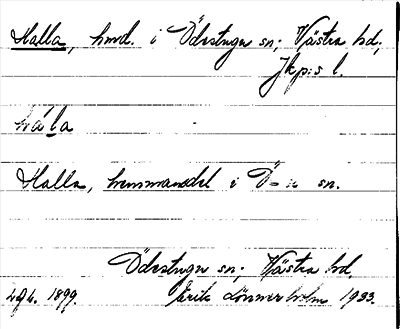 Halla, hmd. i Ödestugu sn; Västra hd,
Jkp:s l.
hála
Halla, hemmansdel i Ö-u sn.
Ödestugu sn; Västra hd,
1899. Erik Lönnerholm 1933.